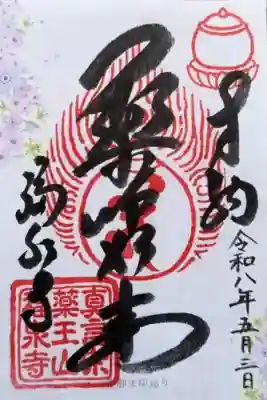 奉納
令和八年五月三日
薬師如来
福泉寺
真言宗
薬王山
福泉寺